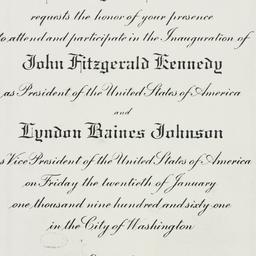 requests the honor of your presence
to attend and participate in the Inauguration of
John Fitzgerald Kennedy
as President of the United States of America
and
Lyndon Baines Johnson
as Vice President of the United States of America
on Friday the twentieth of January
one thousand nine hundred and sixty one
in the City of Washington